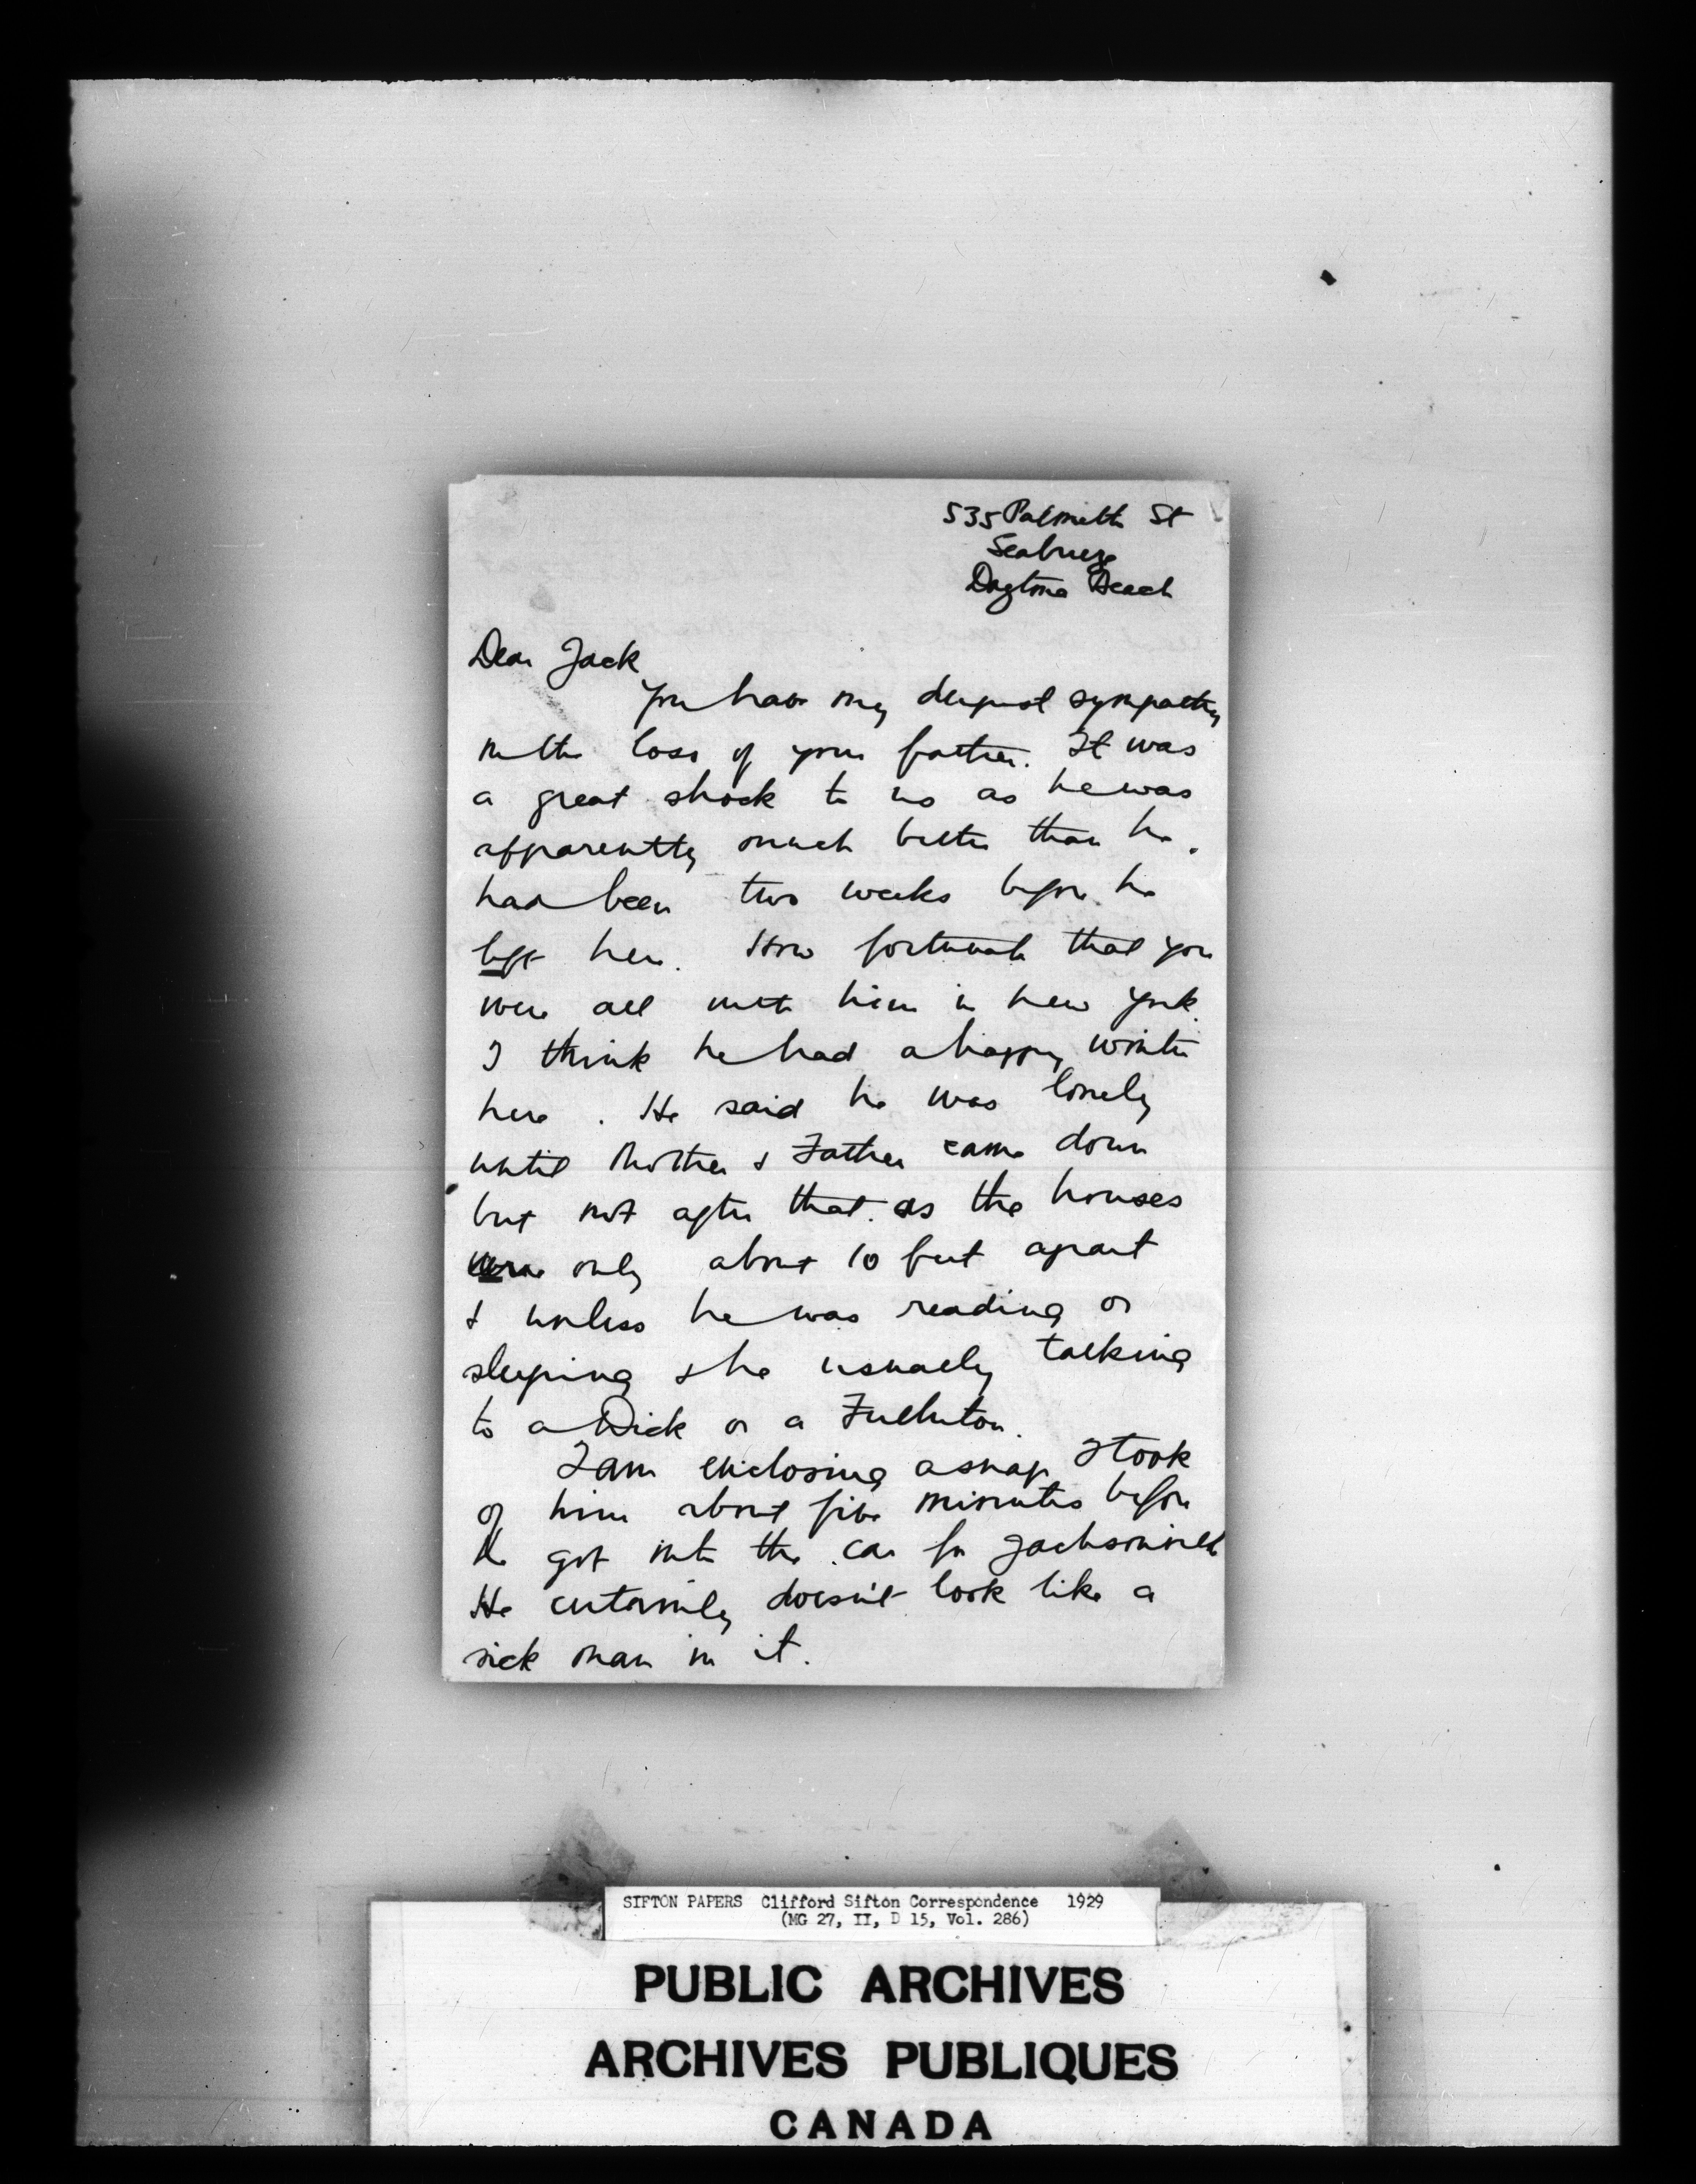 535 Palmetto St
Seabreeze
Daytona Beach
Dear Jack
You have my deepest sympathy
in the loss of your father. It was
a great shock to us as he was
apparently much better than he
had been two weeks before he
left here. How fortunate that you
were all with him in New York.
I think he had a happy winter
here. He said he was lonely
until Mother & Father came down
but not after that as the houses
were only about 10 feet apart
& unless he was reading or
sleeping & he usually talking
to a Dick or a Fullerton.
I am enclosing a snap I took
of him about five minutes before
he got into the car for Jacksonville
He certainly doesn't look like a
sick man in it.
SIFTON PAPERS Clifford Sifton Correspondence 1929
(MG 27, II, D 15, Vol. 286)
PUBLIC ARCHIVES
ARCHIVES PUBLIQUES
CANADA